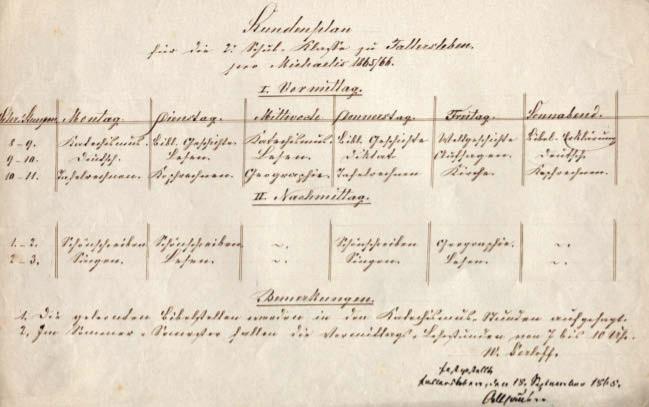 Stundenplan
für die 2. Schul-Klasse zu Fallersleben.
pro Michaelis 1865/66.
I. Vormittag.
Montag. Dienstag. Mittwoch Donnerstag. Freitag. Sonnabend.
8-9. Katechismus. Bibl. Geschichte. Katechismus. Bibl. Geschichte Weltgeschichte Bibel-Erklärung
9-10. Deutsch. Lesen. Lesen. Diktat Aufsagen. Deutsch.
10-11. Tafelrechnen. Kopfrechnen. Geographie. Tafelrechnen Kirche. Kopfrechnen.
II. Nachmittag.
1-2. Schönschreiben Schönschreiben. ~. Schönschreiben Geographie. ~.
2-3. Singen. Lesen. ~. Singen. Lesen. ~.
Bemerkungen.
1. Die gelernten Bibelstellen werden in den Katechismus-Stunden aufgesagt.
2. Im Sommer-Semester fallen die Vormittags-Lehrstunden von 7 bis 10 Uhr.
W.
Festgestellt
Fallersleben, den 18. September 1865.